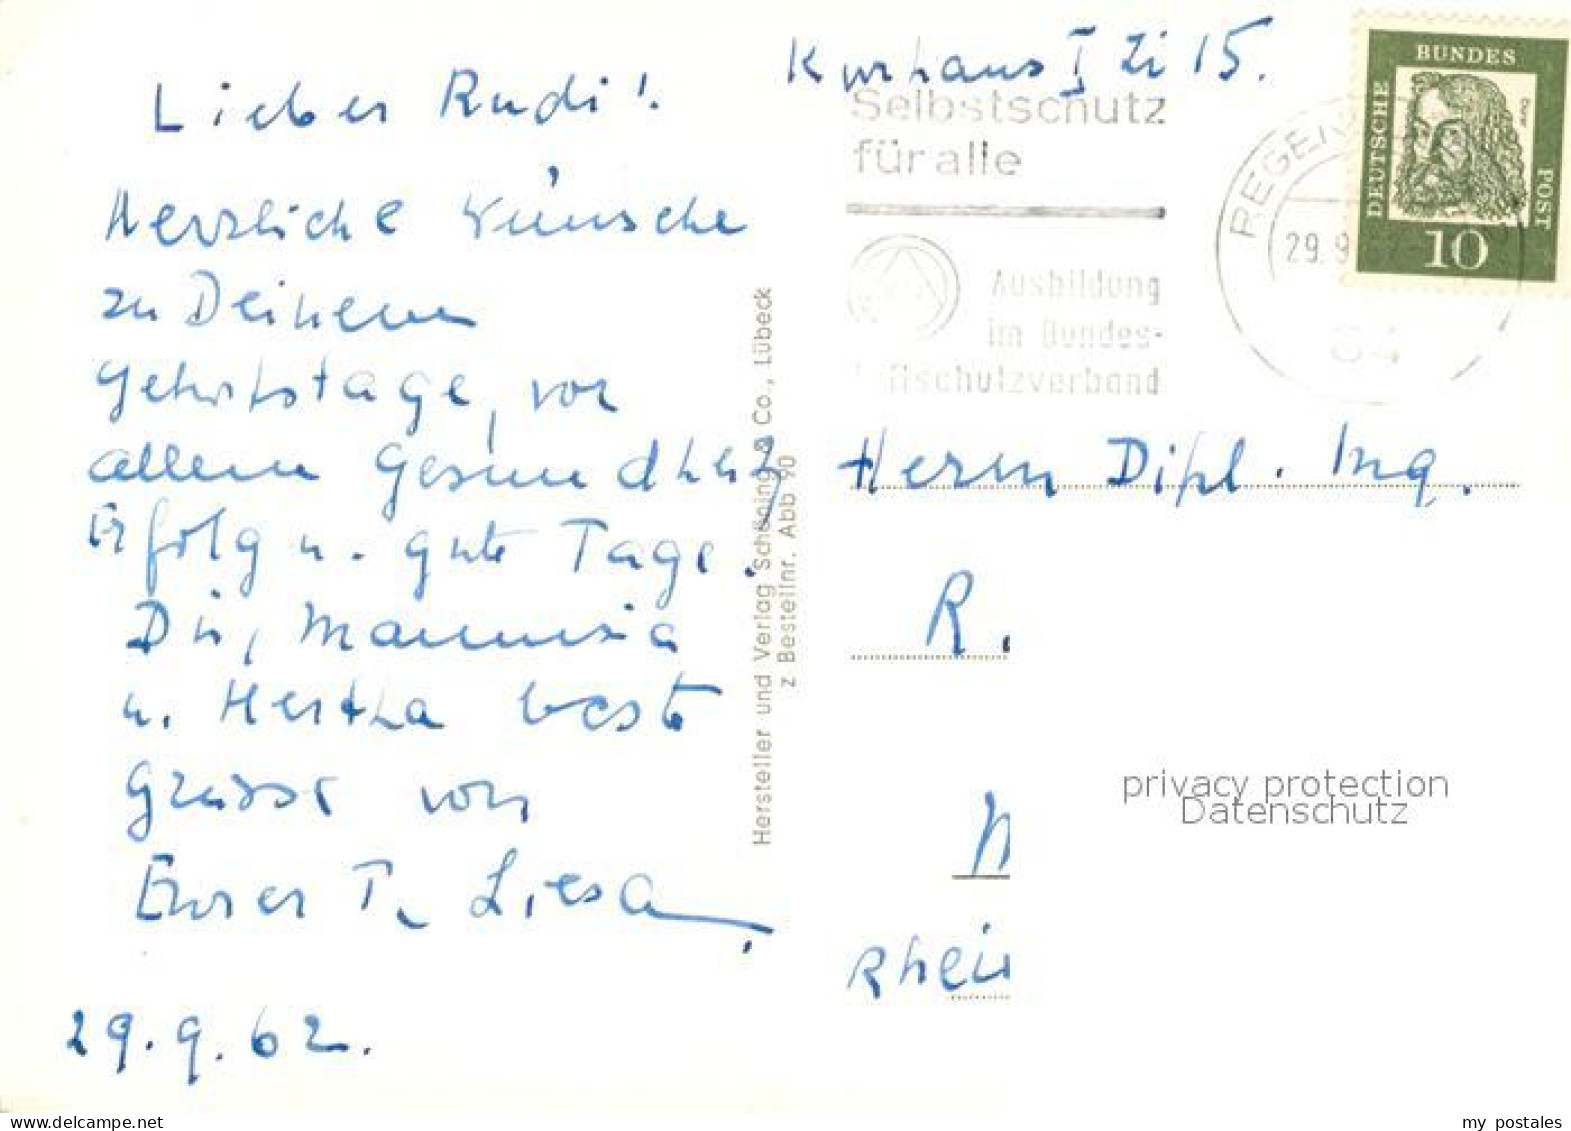 Kurhaus I Zi 15.
Lieber Rudi!
Herzliche Wünsche
zu Deinem
Geburtstage, vor
allem Gesundheit
Erfolg u. gute Tage.
Dir, Mammia
u. Hertha beste
Grüsse von
Eurer T. Liesa
29.9.62.
Hersteller und Verlag Schöning & Co., Lübeck
z Bestellnr. Abb 90
Selbstschutz
für alle
Ausbildung
im Bundes-
luftschutzverband
REGEN
29.9
84
DEUTSCHE
BUNDES
POST
Dürer
10
Herrn Dipl. Ing.
R.
Rhein
privacy protection
Datenschutz
www.delcampe.net
my_postales